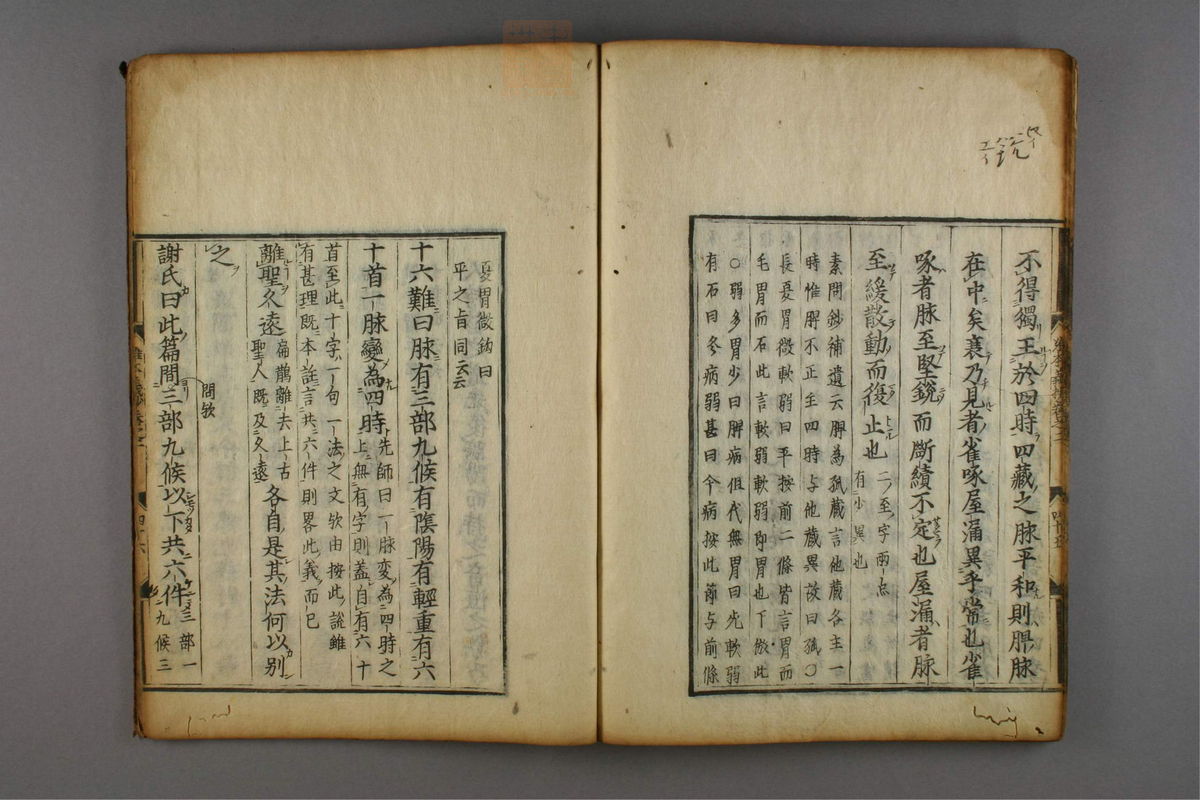 不得獨王於四時四藏之脉平和則脾脉
在中矣衰乃見者雀啄屋漏異乎常也雀
啄者脉至堅銳而斷續不定也屋漏者脉
至緩散動而復止也
二ノ至字兩点
有少異也
素問鈔補遺云脾為孤藏言他藏各主一
時惟脾不正主四時与他藏異故曰孤〇
長夏胃微軟弱曰平按前二條皆言胃而
毛胃而石此言軟弱軟弱即胃也下倣此
〇弱多胃少曰脾病但代無胃曰死軟弱
有石曰冬病弱甚曰今病按此節与前條
夏胃微鈎曰
平之旨同云云
十六難曰脉有三部九候有陰陽有輕重有六
十首一脉變為四時
先師曰一脉変為四時之
上無有字則蓋自有六十
首至此十字一句一法之文欤由按此說雖
有甚理既本註言共六件則畧此義而已
離聖久遠
扁鵲離去上古
聖人既及久遠
各自是其法何以別
之
問欤
謝氏曰此篇問三部九候以下共六件
三部一
九候三